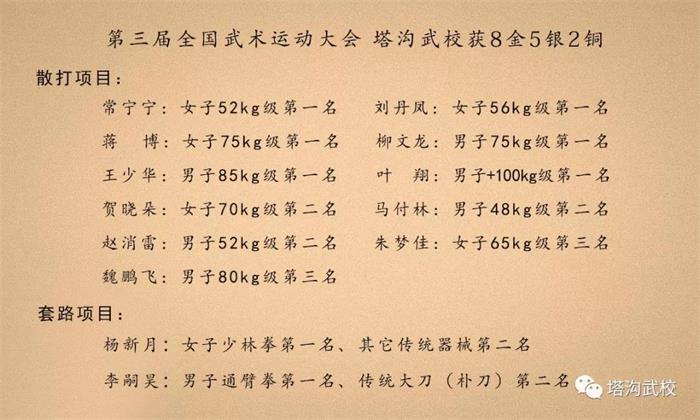 第三届全国武术运动大会 塔沟武校获8金5银2铜
散打项目：
常宁宁：女子52kg级第一名 刘丹凤：女子56kg级第一名
蒋 博：女子75kg级第一名 柳文龙：男子75kg级第一名
王少华：男子85kg级第一名 叶 翔：男子+100kg级第一名
贺晓朵：女子70kg级第二名 马付林：男子48kg级第二名
赵消雷：男子52kg级第二名 朱梦佳：女子65kg级第三名
魏鹏飞：男子80kg级第三名
套路项目：
杨新月：女子少林拳第一名、其它传统器械第二名
李嗣昊：男子通臂拳第一名、传统大刀（朴刀）第二名
塔沟武校